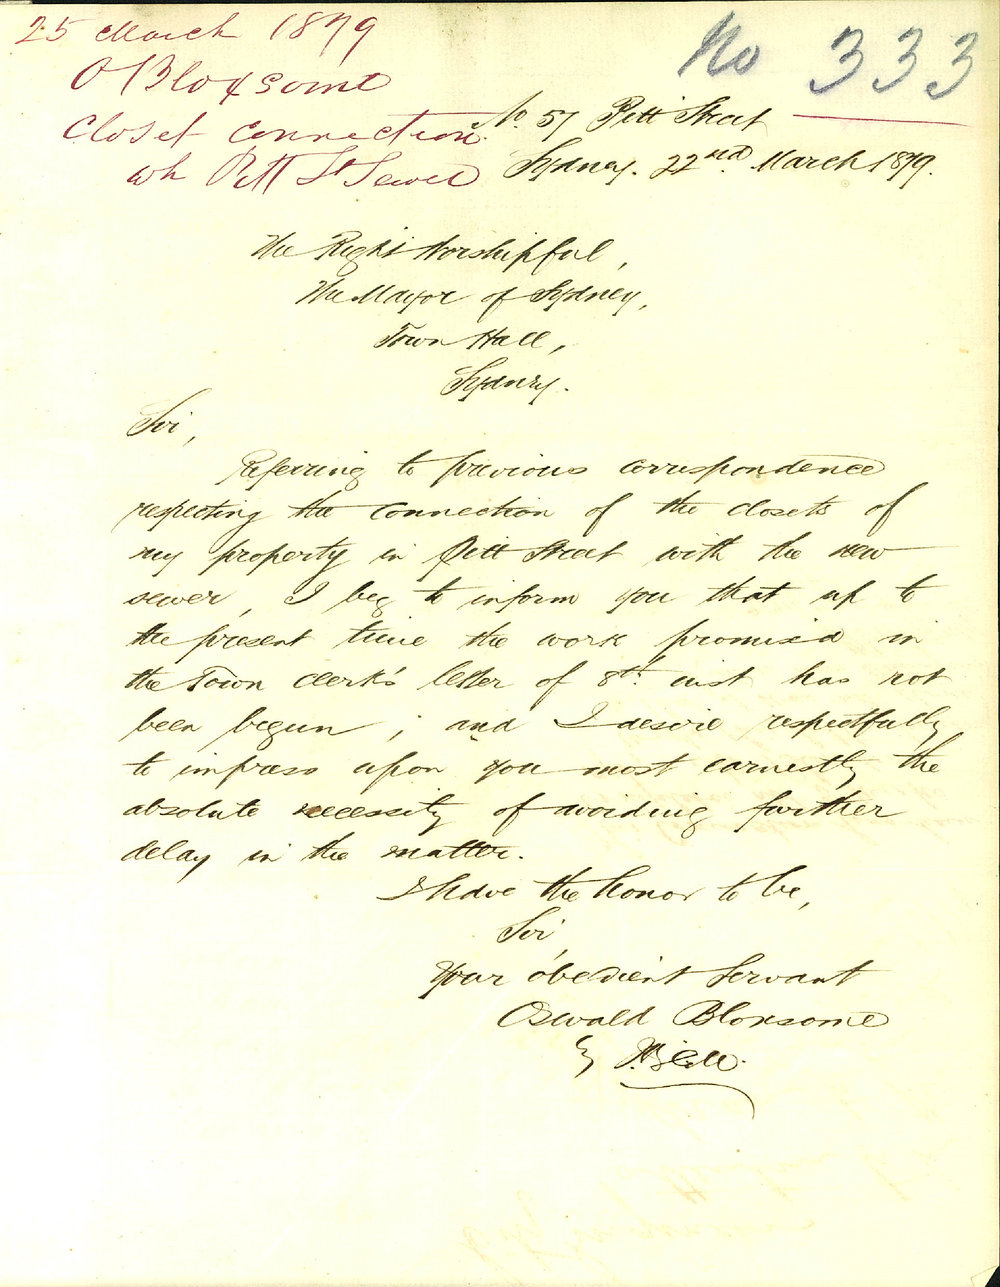 25 March 1879
O Bloxsome
Closet Connection
wh Pitt St Sewer
No 333
No. 57 Pitt Street
Sydney. 22nd. March 1879.
The Right Worshipful,
The Mayor of Sydney,
Town Hall,
Sydney.
Sir,
Referring to previous correspondence
respecting the connection of the closets of
my property in Pitt Street with the new
sewer, I beg to inform you that up to
the present time the work promised in
the Town Clerk's letter of 8th. inst has not
been begun; and I desire respectfully
to impress upon you most earnestly the
absolute necessity of avoiding further
delay in the matter.
I have the honor to be,
Sir,
Your obedient Servant
Oswald Bloxsome